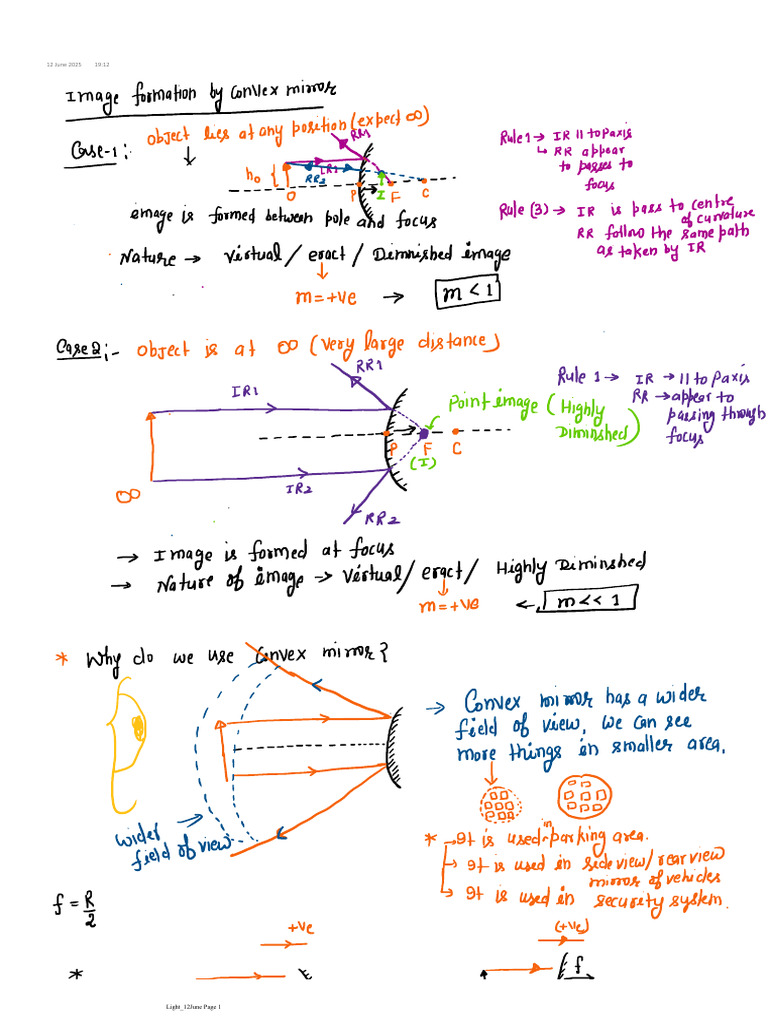 12 June 2025 19:12
Image formation by Convex mirror
Case-1:- Object lies at any position (expect ∞)
RR1
IR1
RR2
h₀
O
P
I
F
C
Rule 1 → IR || to Paxis
↳ RR appear
to passes to
focus
Rule (3) → IR is pass to centre
of curvature
RR follow the same path
as taken by IR
image is formed between pole and focus
Nature → Virtual / eract / Diminished image
m = +ve → m < 1
Case 2:- Object is at ∞ (very large distance)
RR1
IR1
Point image (Highly
Diminshed)
P F C
(I)
∞
IR2
RR2
Rule 1 → IR → || to Paxis
RR → appear to
passing through
focus
→ Image is formed at focus
→ Nature of image → Virtual / eract / Highly Diminshed
m = +ve ← m << 1
* Why do we use Convex mirror?
→ Convex mirror has a wider
field of view, we can see
more things in smaller area.
wider
field of view
* → It is used in parking area.
→ It is used in side view / rear view
mirror of vehicles
→ It is used in security system.
f = R/2
+ve
(+ve)
*
f
Light_12June Page 1